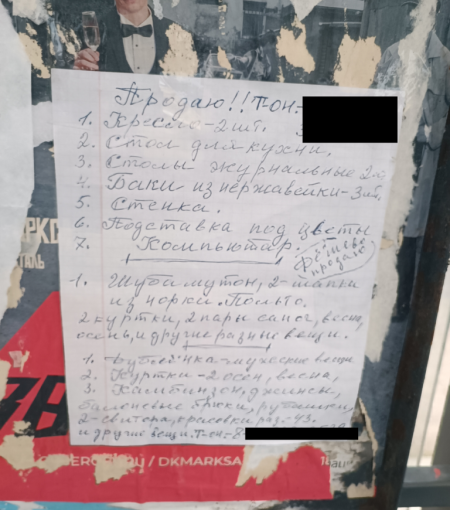 Продаю!! Т-он-
1. Кресло-2 шт.
2. Стол для кухни.
3. Столы журнальные 2 ш
4. Баки из нержавейки-3 шт.
5. Стенка.
6. Подставка под цветы
7. Компьютер.
Дёшево продаю
1. Шуба мутон, 2-шапки
из норки. Пальто.
2 куртки, 2 пары сапог, весна,
осень, и другие разные вещи.
1. Дублёнка-мужские вещи
2. Куртки-2 осен, весна,
3. Камбинзон, джинсы,
брюки, рубашки,
2-свитора, кросовки раз.-43.
и другие вещи. Т-он-8-
ЗВ
/ DKMARKSA